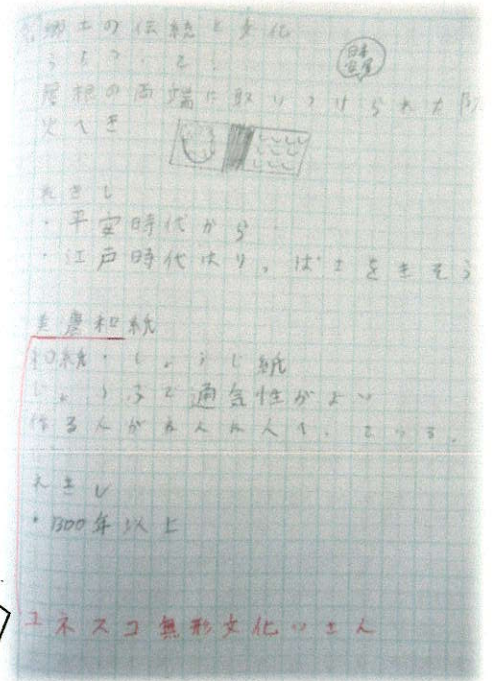 郷土の伝統と文化
うだつ
日本
家屋
屋根の両端に取りつけられた防
火へき
れきし
・平安時代から
・江戸時代は
美濃和紙
和紙・しょうじ紙
じょうぶで通気性がよい
作る人がねんねんへっている。
れきし
・1300年以上
ユネスコ無形文化いさん